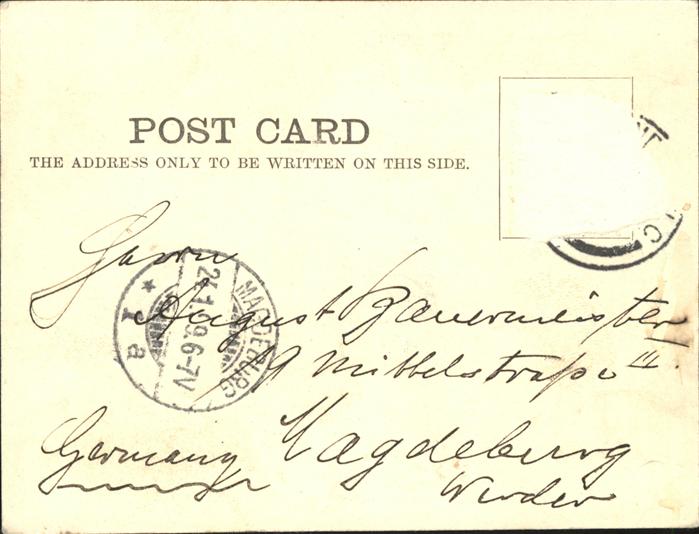 POST CARD
THE ADDRESS ONLY TO BE WRITTEN ON THIS SIDE.
Herrn
August Bauermeister
19 Mittelstraße III.
Germany Magdeburg
Werder
MAGDEBURG
24.1.09.6-7V
* 1 a